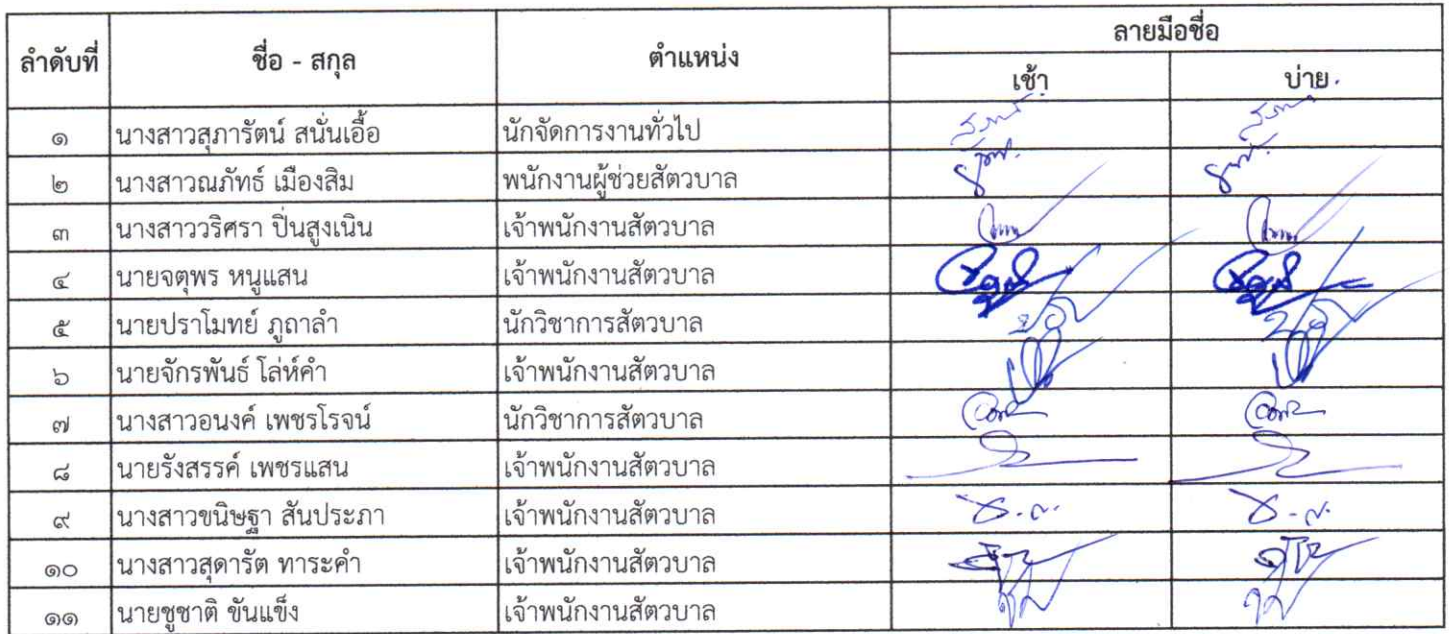 ลำดับที่ ชื่อ - สกุล ตำแหน่ง ลายมือชื่อ
เช้า บ่าย
๑ นางสาวสุภารัตน์ สนั่นเอื้อ นักจัดการงานทั่วไป
๒ นางสาวณภัทธ์ เมืองสิม พนักงานผู้ช่วยสัตวบาล
๓ นางสาววริศรา ปิ่นสูงเนิน เจ้าพนักงานสัตวบาล
๔ นายจตุพร หนูแสน เจ้าพนักงานสัตวบาล
๕ นายปราโมทย์ ภูถาลำ นักวิชาการสัตวบาล
๖ นายจักรพันธ์ โล่ห์คำ เจ้าพนักงานสัตวบาล
๗ นางสาวอนงค์ เพชรโรจน์ นักวิชาการสัตวบาล
๘ นายรังสรรค์ เพชรแสน เจ้าพนักงานสัตวบาล
๙ นางสาวขนิษฐา สันประภา เจ้าพนักงานสัตวบาล
๑๐ นางสาวสุดารัต ทาระคำ เจ้าพนักงานสัตวบาล
๑๑ นายชูชาติ ขันแข็ง เจ้าพนักงานสัตวบาล